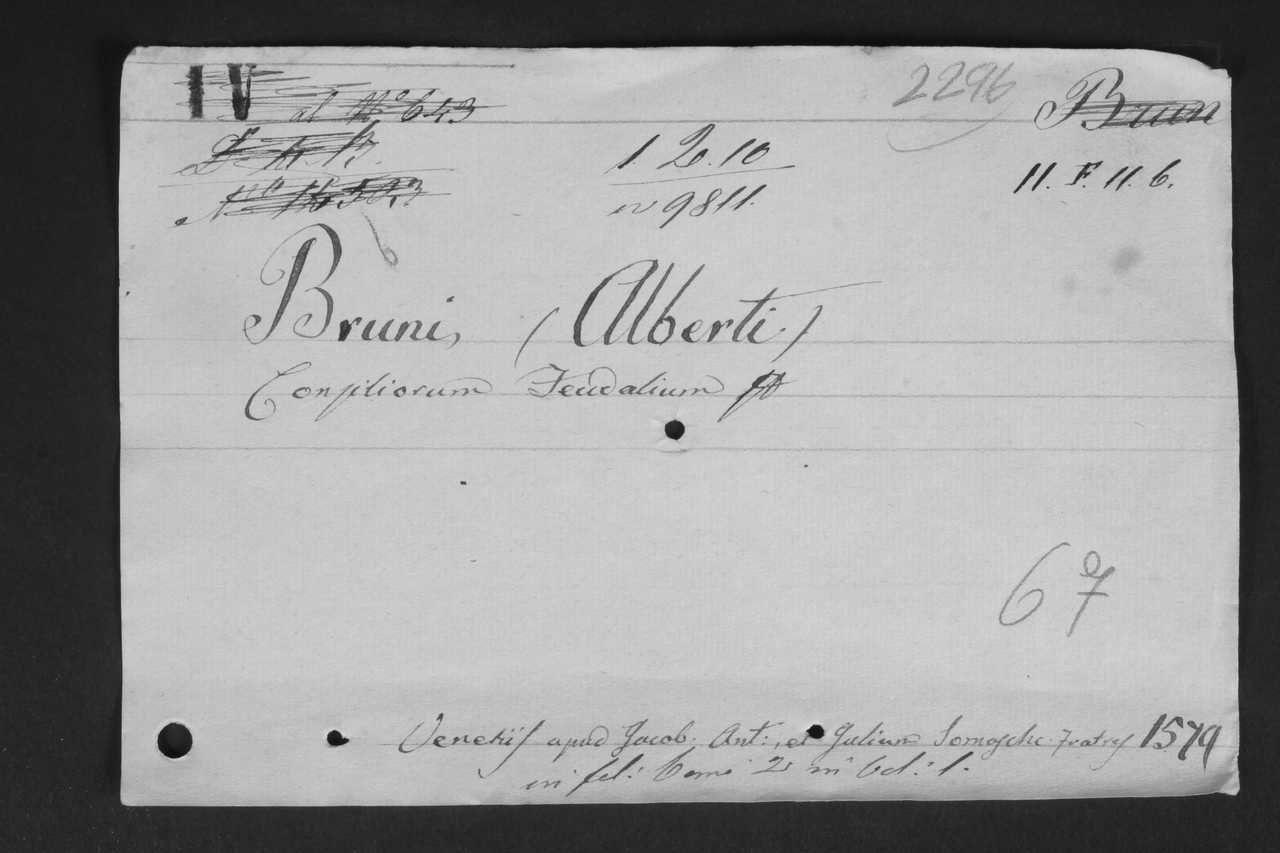 IV
al N.º 643
2296
Brun
1. 2. 10
11. F. 11. 6.
nº 9811.
6
Bruni, (Alberti)
Consiliorum Feudalium
67
Venetiis apud Jacob. Ant:, et Julium Somasche fratres 1579
in fol: Tomi 2 in Vol: 1.